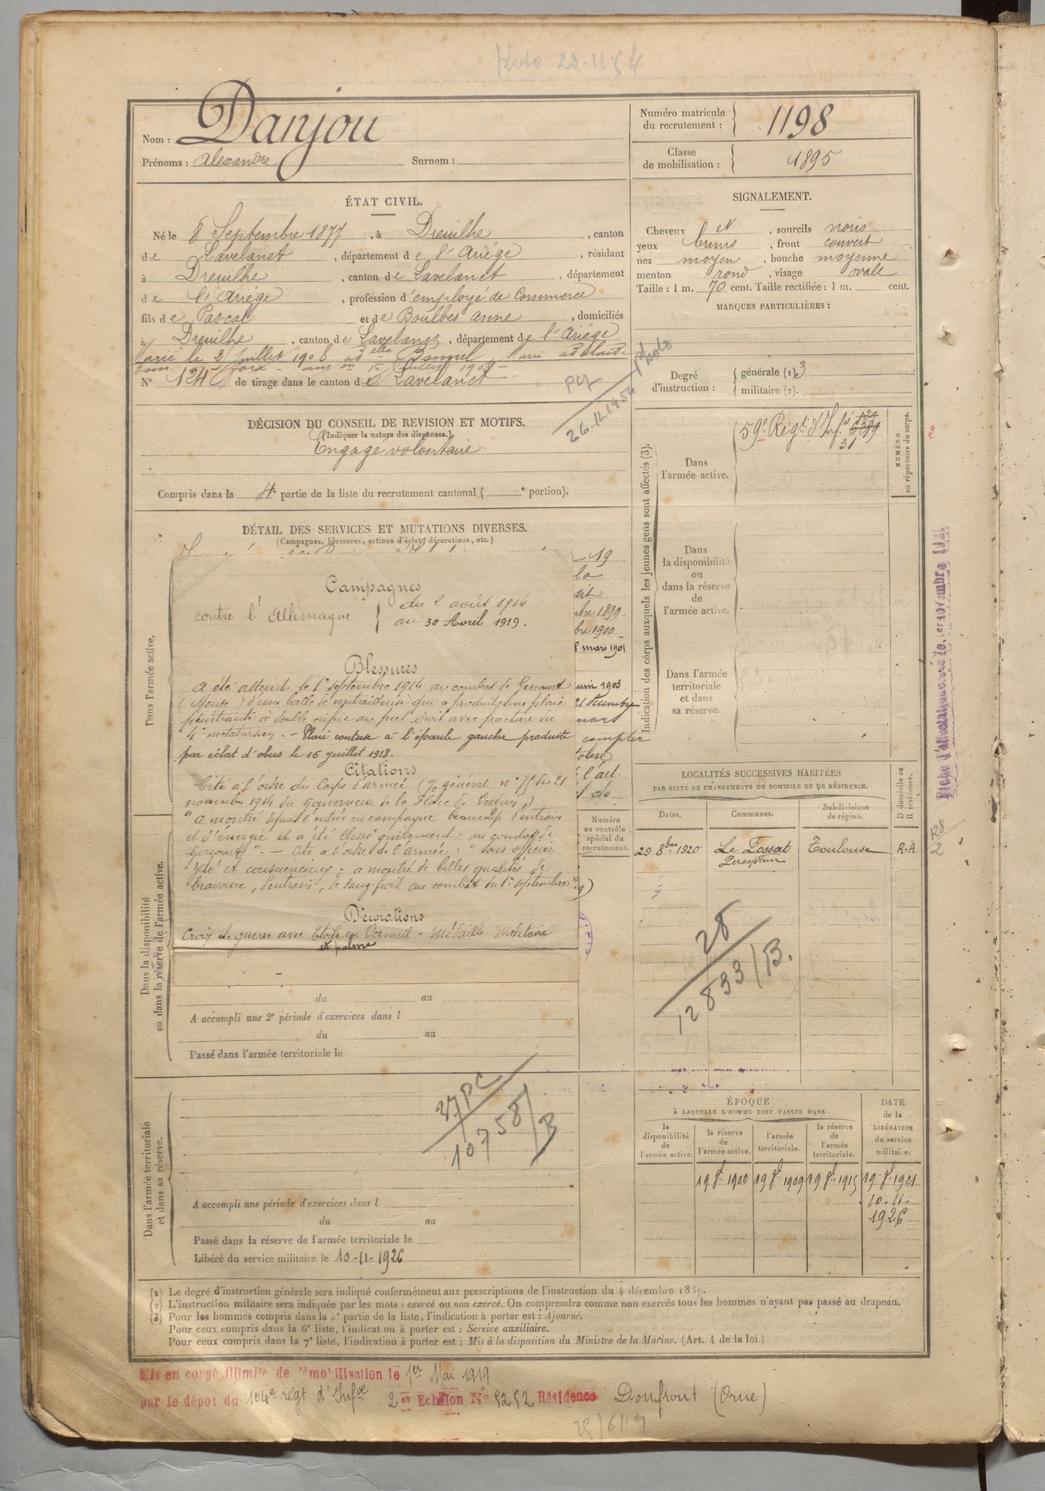 Photo 29-11-54
Nom : Danjou
Prénoms : Alexandre Surnom :
Numéro matricule du recrutement : 1198
Classe de mobilisation : 1895
ÉTAT CIVIL.
Né le 8 Septembre 1877, à Dreuilhe, canton
de Lavelanet, département de l'Ariège, résidant
à Dreuilhe, canton de Lavelanet, département
de l'Ariège, profession d'employé de Commerce
fils de Pascal et de Boulbes anne, domiciliés
à Dreuilhe, canton de Lavelanet, département de l'Ariège
Marié le 2 Juillet 1908 à Delle
N° 124 de tirage dans le canton de Lavelanet
26.11.1954 photo
SIGNALEMENT.
Cheveux et, sourcils noirs
yeux bruns, front couvert
nez moyen, bouche moyenne
menton rond, visage ovale
Taille : 1 m. 70 cent. Taille rectifiée : 1 m. cent.
MARQUES PARTICULIÈRES :
Degré d'instruction : générale (1) 3
militaire (2).
DÉCISION DU CONSEIL DE REVISION ET MOTIFS.
(Indiquer la nature des dispenses.)
Engagé volontaire
Compris dans la 4e partie de la liste du recrutement cantonal ( e portion).
Indication des corps auxquels les jeunes gens sont affectés (3).
Dans l'armée active.
59e Régt d'Infie
31
NUMÉRO au répertoire du corps.
Dans la disponibilité ou dans la réserve de l'armée active.
Dans l'armée territoriale et dans sa réserve.
DÉTAIL DES SERVICES ET MUTATIONS DIVERSES.
(Campagnes, blessures, actions d'éclat, décorations, etc.)
Dans l'armée active.
Campagnes
contre l'Allemagne du 2 août 1914
au 30 Avril 1919.
Blessures
A été atteint le 1er septembre 1914 au combat de Gercourt
(Meuse) d'une balle de mitrailleuse qui a produit une plaie
pénétrante à double orifice au pied droit avec fracture du
4e métatarsien. - Plaie contuse à l'épaule gauche produite
par éclat d'obus le 15 juillet 1918.
Citations
Cité à l'ordre du Corps d'armée (o/ général n° 75 du 21
novembre 1914 du Gouverneur de la Place de Verdun)
"a montré depuis l'entrée en campagne beaucoup d'entrain
et d'énergie et a été blessé grièvement au combat de
Gercourt". - Cité à l'ordre de l'armée : "Sous officier
zélé et consciencieux ; a montré de belles qualités de
bravoure, d'entrain, de sang froid au combat du 1er septembre
Décorations
Croix de guerre avec Etoile en Vermeil - Médaille Militaire
et palme
19
1899
1900
8 mars 1901
juin 1903
21 Décembre
mars
compter
l'art.
Dans la disponibilité ou dans la réserve de l'armée active.
Numéro au contrôle spécial du recrutement.
LOCALITÉS SUCCESSIVES HABITÉES
PAR SUITE DE CHANGEMENTS DE DOMICILE OU DE RÉSIDENCE.
Dates. Communes. Subdivisions de région. D domicile ou R résidence.
29 8bre 1920 Le Fossat Percepteur Toulouse R.A.
Fiche d'affectation
28
12893/B.
du au
A accompli une 2e période d'exercices dans l
du au
Passé dans l'armée territoriale le
27 PC
10758/B
Dans l'armée territoriale et dans sa réserve.
A accompli une période d'exercices dans l
du au
Passé dans la réserve de l'armée territoriale le
Libéré du service militaire le 10-11-1926
ÉPOQUE
À LAQUELLE L'HOMME DOIT PASSER DANS
la disponibilité de l'armée active. la réserve de l'armée active. l'armée territoriale. la réserve de l'armée territoriale.
DATE de la LIBÉRATION du service militaire.
19 8bre 1900 19 8bre 1909 19 8bre 1915 19 8bre 1921
10-11-
1926
(1) Le degré d'instruction générale sera indiqué conformément aux prescriptions de l'instruction du 4 décembre 1889.
(2) L'instruction militaire sera indiquée par les mots : exercé ou non exercé. On comprendra comme non exercés tous les hommes n'ayant pas passé au drapeau.
(3) Pour les hommes compris dans la 5e partie de la liste, l'indication à porter est : Ajourné.
Pour ceux compris dans la 6e liste, l'indication à porter est : Service auxiliaire.
Pour ceux compris dans la 7e liste, l'indication à porter est : Mis à la disposition du Ministre de la Marine. (Art. 4 de la loi.)
Mis en congé illimité de démobilisation le 1er Mai 1919
par le dépôt du 104e régt d'Infie 2e Echelon N° 5252 Résidence Domfront (Orne)
25/6/19